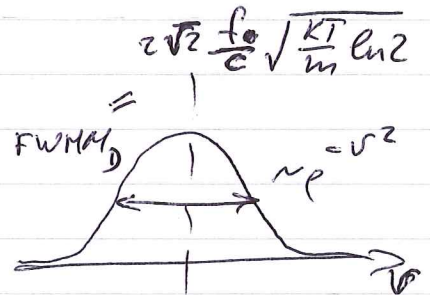 2√2 f₀/c √(KT/m ln2)
=
FWHM_D
~e^{-v²}
v